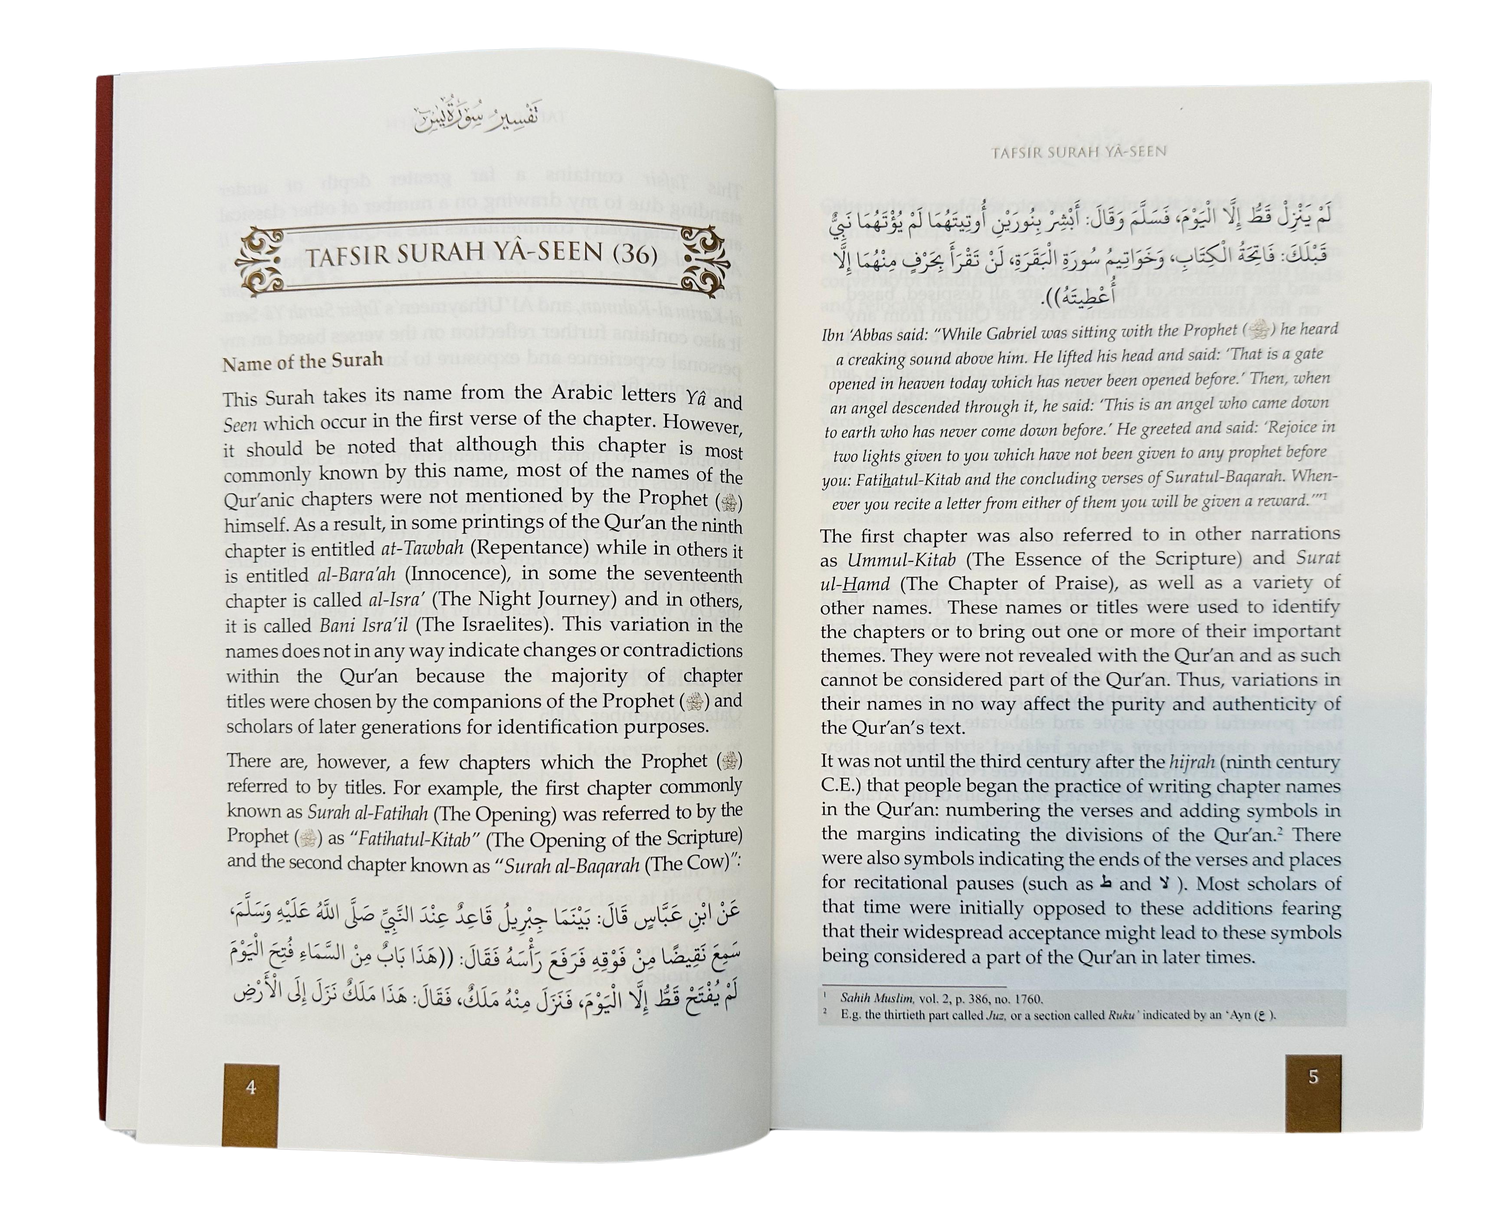 تَفْسِيرُ سُورَةِ يٰسٓ
TAFSIR SURAH YÂ-SEEN (36)
Name of the Surah
This Surah takes its name from the Arabic letters Yâ and
Seen which occur in the first verse of the chapter. However,
it should be noted that although this chapter is most
commonly known by this name, most of the names of the
Qur'anic chapters were not mentioned by the Prophet (ﷺ)
himself. As a result, in some printings of the Qur'an the ninth
chapter is entitled at-Tawbah (Repentance) while in others it
is entitled al-Bara'ah (Innocence), in some the seventeenth
chapter is called al-Isra' (The Night Journey) and in others,
it is called Bani Isra'il (The Israelites). This variation in the
names does not in any way indicate changes or contradictions
within the Qur'an because the majority of chapter
titles were chosen by the companions of the Prophet (ﷺ) and
scholars of later generations for identification purposes.
There are, however, a few chapters which the Prophet (ﷺ)
referred to by titles. For example, the first chapter commonly
known as Surah al-Fatihah (The Opening) was referred to by the
Prophet (ﷺ) as "Fatihatul-Kitab" (The Opening of the Scripture)
and the second chapter known as "Surah al-Baqarah (The Cow)":
عَنْ ابْنِ عَبَّاسٍ قَالَ: بَيْنَمَا جِبْرِيلُ قَاعِدٌ عِنْدَ النَّبِيِّ صَلَّى اللَّهُ عَلَيْهِ وَسَلَّمَ،
سَمِعَ نَقِيضًا مِنْ فَوْقِهِ فَرَفَعَ رَأْسَهُ فَقَالَ: ((هَذَا بَابٌ مِنْ السَّمَاءِ فُتِحَ الْيَوْمَ
لَمْ يُفْتَحْ قَطُّ إِلَّا الْيَوْمَ، فَنَزَلَ مِنْهُ مَلَكٌ، فَقَالَ: هَذَا مَلَكٌ نَزَلَ إِلَى الْأَرْضِ
4
TAFSIR SURAH YÂ-SEEN
لَمْ يَنْزِلْ قَطُّ إِلَّا الْيَوْمَ، فَسَلَّمَ وَقَالَ: أَبْشِرْ بِنُورَيْنِ أُوتِيتَهُمَا لَمْ يُؤْتَهُمَا نَبِيٌّ
قَبْلَكَ: فَاتِحَةُ الْكِتَابِ، وَخَوَاتِيمُ سُورَةِ الْبَقَرَةِ، لَنْ تَقْرَأَ بِحَرْفٍ مِنْهُمَا إِلَّا
أُعْطِيتَهُ)).
Ibn 'Abbas said: "While Gabriel was sitting with the Prophet (ﷺ) he heard
a creaking sound above him. He lifted his head and said: 'That is a gate
opened in heaven today which has never been opened before.' Then, when
an angel descended through it, he said: 'This is an angel who came down
to earth who has never come down before.' He greeted and said: 'Rejoice in
two lights given to you which have not been given to any prophet before
you: Fatihatul-Kitab and the concluding verses of Suratul-Baqarah. When-
ever you recite a letter from either of them you will be given a reward.'"1
The first chapter was also referred to in other narrations
as Ummul-Kitab (The Essence of the Scripture) and Surat
ul-Hamd (The Chapter of Praise), as well as a variety of
other names. These names or titles were used to identify
the chapters or to bring out one or more of their important
themes. They were not revealed with the Qur'an and as such
cannot be considered part of the Qur'an. Thus, variations in
their names in no way affect the purity and authenticity of
the Qur'an's text.
It was not until the third century after the hijrah (ninth century
C.E.) that people began the practice of writing chapter names
in the Qur'an: numbering the verses and adding symbols in
the margins indicating the divisions of the Qur'an.2 There
were also symbols indicating the ends of the verses and places
for recitational pauses (such as ط and لا ). Most scholars of
that time were initially opposed to these additions fearing
that their widespread acceptance might lead to these symbols
being considered a part of the Qur'an in later times.
1 Sahih Muslim, vol. 2, p. 386, no. 1760.
2 E.g. the thirtieth part called Juz, or a section called Ruku' indicated by an 'Ayn (ع ).
5